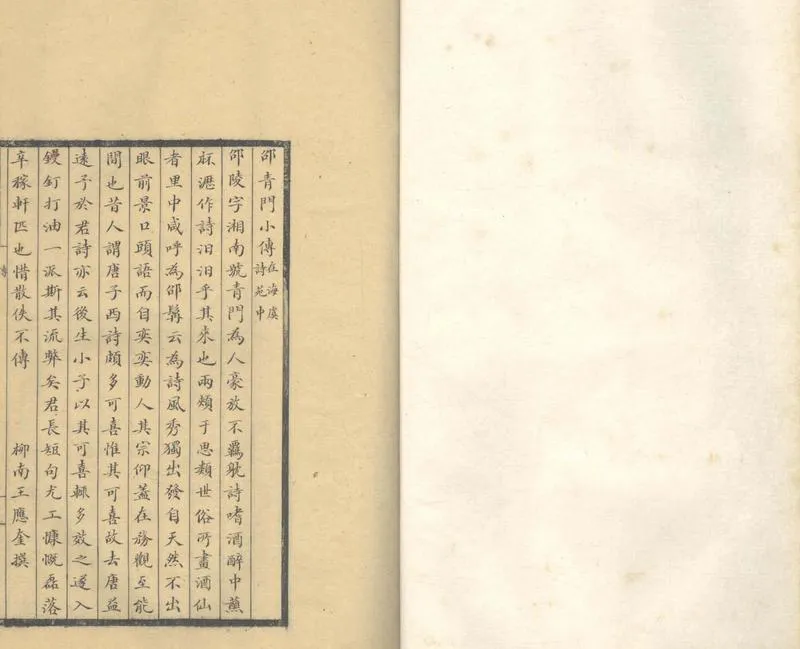 邵青門小傳在海虞詩苑中
邵陵字湘南號青門為人豪放不羈耽詩嗜酒醉中
瀝作詩汩汩乎其來也兩頰于思類世俗所畫酒仙
者里中咸呼為邵髯云為詩風秀獨出發自天然不出
眼前景口頭語而自奕奕動人其宗仰蓋在務觀至能
間也昔人謂唐子西詩頗多可喜惟其可喜故去唐益
遠予於君詩亦云後生小子以其可喜輒多效之遂入
釘打油一派斯其流弊矣君長短句尤工慷慨磊落
辛稼軒匹也惜散佚不傳　　　柳南王應奎撰